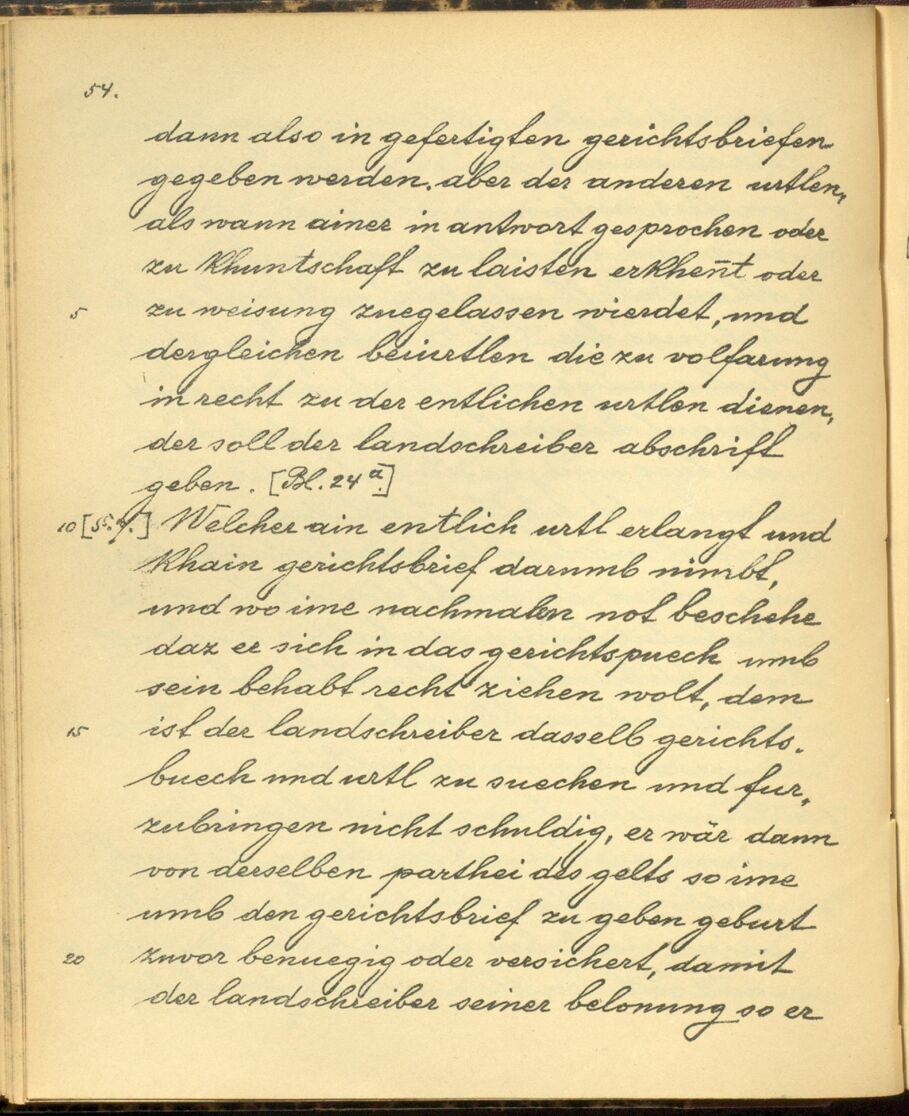 54.
dann also in gefertigten gerichtsbriefen
gegeben werden. aber der anderen urtlen,
als wann ainer in antwort gesprochen oder
zu khuntschaft zu laisten erkhen̄t oder
5 zu weisung zuegelassen wierdet, und
dergleichen beiurtlen die zu volfarung
in recht zu der entlichen urtlen dienen,
der soll der landschreiber abschrift
geben. [Bl. 24a.]
10 [55.] Welcher ain entlich urtl erlangt und
khain gerichtsbrief darumb nimbt,
und wo ime nachmalen not beschehe
daz er sich in das gerichtspuech umb
sein behabt recht ziehen wolt, dem
15 ist der landschreiber dasselb gerichts-
buech und urtl zu suechen und fur-
zubringen nicht schuldig, er wär dann
von derselben parthei des gelts so ime
umb den gerichtsbrief zu geben geburt
20 zuvor benuegig oder versichert, damit
der landschreiber seiner belonung so er